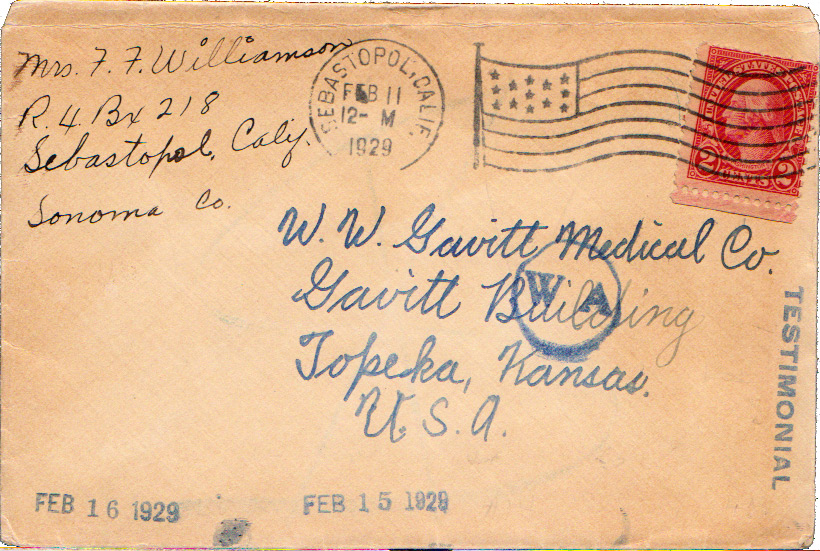 Mrs. F. F. Williamson
R. 4 Bx 218
Sebastopol, Calif.
Sonoma Co.
SEBASTOPOL, CALIF.
FEB 11
12- M
1929
2 CENTS 2
W. W. Gavitt Medical Co.
Gavitt Building
Topeka, Kansas.
U.S.A.
W A
TESTIMONIAL
FEB 16 1929
FEB 15 1929